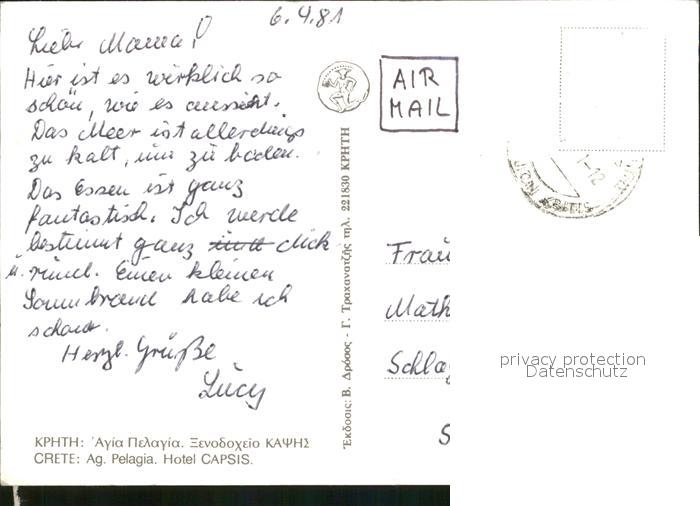 6.4.81
Liebe Mama!
Hier ist es wirklich so
schön, wie es aussieht.
Das Meer ist allerdings
zu kalt, um zu baden.
Das Essen ist ganz
fantastisch. Ich werde
bestimmt ganz dick
u. rund. Einen kleinen
Sonnenbrand habe ich
schon.
Herzl. Grüße
Lucy
ΚΡΗΤΗ: Ἁγία Πελαγία. Ξενοδοχεῖο ΚΑΨΗΣ
CRETE: Ag. Pelagia. Hotel CAPSIS.
Ἔκδοσις: Β. Δρόσος - Γ. Τραχανατζής τηλ. 221830 ΚΡΗΤΗ
AIR
MAIL
Frau
Math
Schla
S
privacy protection
Datenschutz